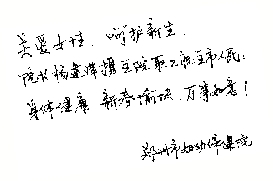 关爱女性、呵护新生
院长杨鑫辉携全院职工祝全市人民:
身体健康 新春愉快、万事如意!
郑州市妇幼保健院